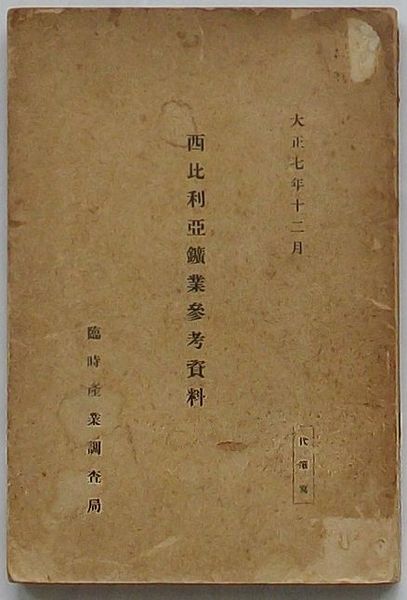 大正七年十二月
西比利亞鑛業參考資料
臨時產業調查局
代謄寫